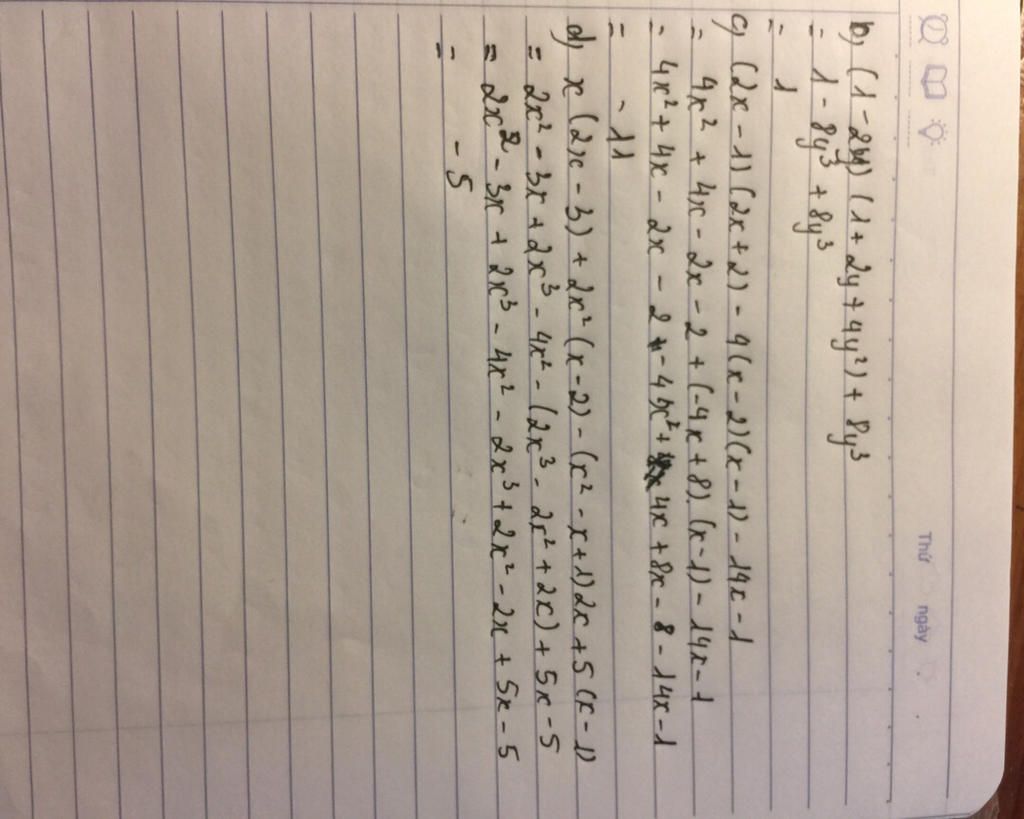 Thứ ngày
b, (1 - 2y) (1 + 2y + 4y²) + 8y³
= 1 - 8y³ + 8y³
= 1
c, (2x - 1) (2x + 2) - 4(x - 2)(x - 1) - 14x - 1
= 4x² + 4x - 2x - 2 + (-4x + 8). (x - 1) - 14x - 1
= 4x² + 4x - 2x - 2 - 4x² + 4x + 8x - 8 - 14x - 1
= - 11
d, x (2x - 3) + 2x² (x - 2) - (x² - x + 1) 2x + 5 (x - 1)
= 2x² - 3x + 2x³ - 4x² - (2x³ - 2x² + 2x) + 5x - 5
= 2x² - 3x + 2x³ - 4x² - 2x³ + 2x² - 2x + 5x - 5
= - 5